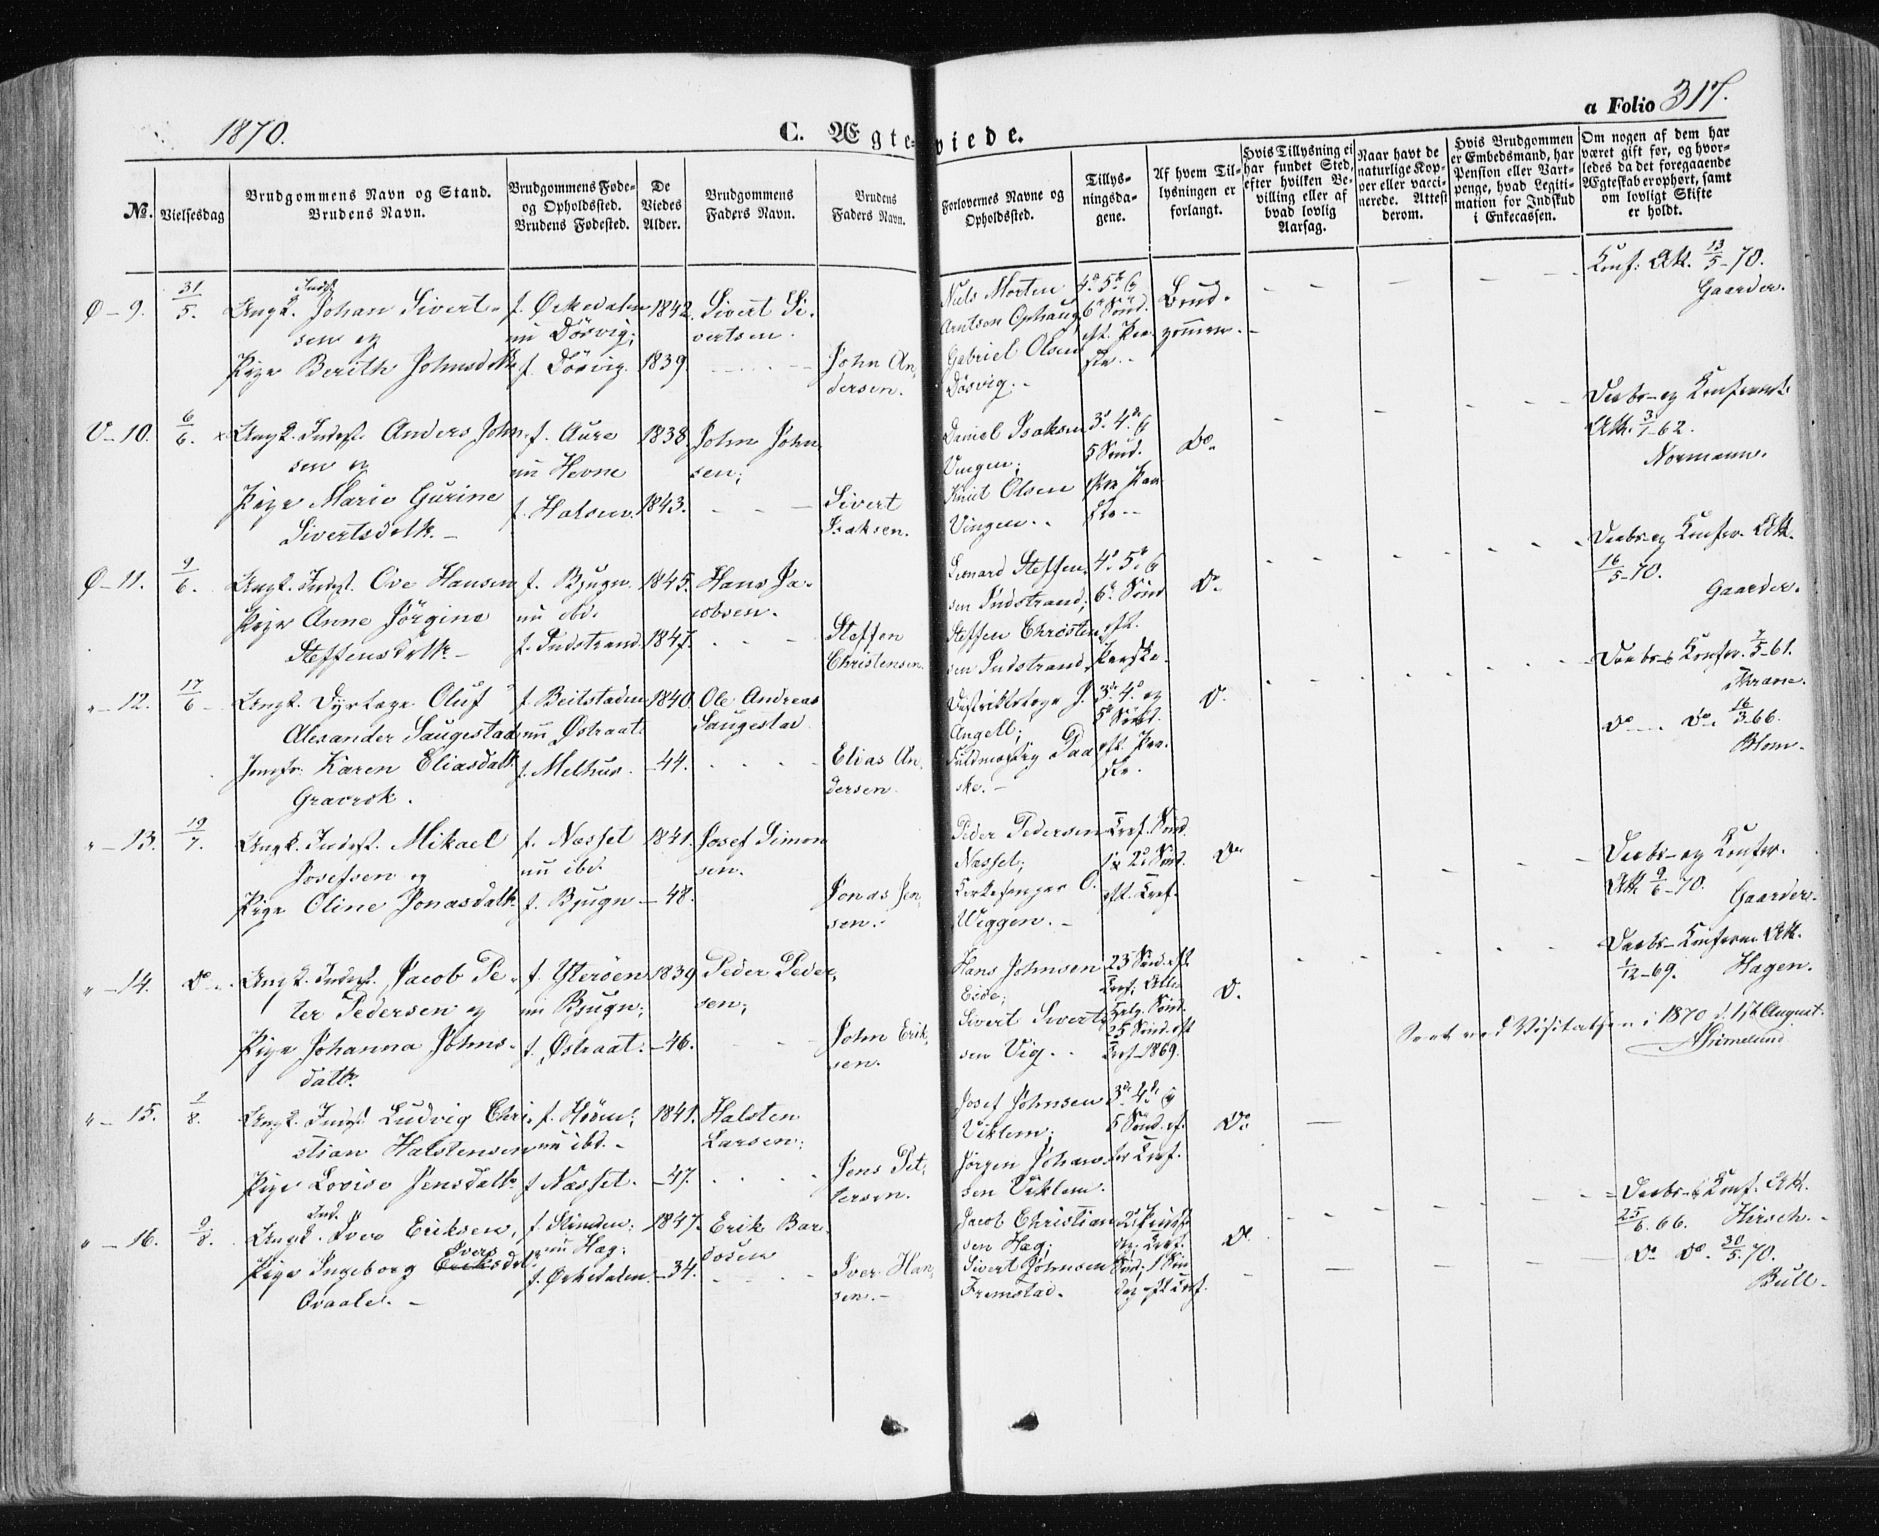 1870.
C. Ægteviede.
a Folio 317.
No.
Vielsesdag
Brudgommens Navn og Stand.
Brudens Navn.
Brudgommens Føde-
og Opholdssted.
Brudens Fødested.
De
Viedes
Alder.
Brudgommens
Faders Navn.
Brudens
Faders Navn.
Forlovernes Navne og
Opholdssted.
Tillys-
ningsda-
gene.
Af hvem Til-
lysningen er
forlangt.
Hvis Tillysning ei
har fundet Sted,
efter hvilken Be-
villing eller af
hvad lovlig
Aarsag.
Naar havt de
naturlige Kop-
per eller vacci-
nerede. Attest
derom.
Hvis Brudgommen
er Embedsmand, har
Pension eller Vart-
penge, hvad Legiti-
mation for Indskud
i Enkecassen.
Om nogen af dem har
været gift før, og hvor-
ledes da det foregaaende
Ægteskab er ophørt, samt
om lovligt Skifte
er holdt.
Ø-9. 31/5. Ungk. Indst Johan Sivert-
sen og
Pige Berith Johnsdatt.
f. Ørkedalen
nu Dösvig;
f. Dösvig.
1842.
1839.
Sivert Si-
vertsen.
John An-
dersen.
Niels Morten
Arntsen Ophaug
Gabriel Olsen
Dösvig.
4de 5te &
6te Sönd.
eft. Paa-
ske.
Brud-
gommen.
Konf: Att. 13/5-70.
Gaarder.
V-10. 6/6. x Ungk. Inderst. Anders John-
sen og
Pige Marie Gurine
Sivertsdatt.
f. Aure
nu Hevne
f. Halsen.
1838.
1843.
John John-
sen;
Sivert
Isaksen.
Daniel Isaksen
Vingen;
Knut Olsen
Vingen.
3de 4de &
5 Sönd.
Do.
Daabs- og Konfirmat.
Att. 3/1-62.
Normann.
Ø-11. 9/6. Ungk. Inderst. Ove Hansen
Pige Anne Jörgine
Steffensdatt.
f. Bjugn.
nu ibd.
f. Indstrand.
1845.
1847.
Hans Ja-
cobsen.
Steffen
Christensen
Lenard Steffen-
sen Indstrand;
Steffen Christen-
sen Indstrand
4de 5te &
6te Sönd
eft.
Paaske.
Do.
Daabs- og Konfir. Att.
16/5-70.
Gaarder.
"-12. 17/6 Ungk. Dyrlæge Oluf
Alexander Saugestad
Jomfr. Karen Eliasdatt.
Gravrok.
f. Beitstaden
nu Østraat.
f. Melhus.
1840.
-44.
Ole Andreas
Saugestad
Elias An-
dersen.
Distriktslæge J.
Angell;
Fuldmægtig Paa-
ske.
3de 4de og
5te Sönd.
eft. Paa-
ske.
Do.
Daabs- & Konfir. 7/5-61.
Thrane.
Do Do. 16/3-66.
Blom.
"-13. 19/7. Ungk. Inderst. Mikael
Josefsen og
Pige Oline Jonasdatt.
f. Næsset
nu ibd.
f. Bjugn
1841.
-48.
Josef Simon-
sen.
Jonas Jen-
sen.
Peder Pedersen
Næsset;
Kirkesanger O.
Wiggen.
Tref. Sönd.
1 & 2 Sönd.
eft. Tref.
Do
Daabs- og Konfir.
Att. 9/6-70.
Gaarder.
"-14. Do Ungk. Inderst. Jacob Pe-
ter Pedersen og
Pige Johanna Johns-
datt.
f. Yteröen
nu Bjugn;
f. Østraat.
1839
-46.
Peder Peder-
sen;
John Erik-
sen.
Hans Johnsen
Eide;
Sivert Sivert-
sen Vig.
23 Sönd. eft.
Tref; Alle
Helg. Sönd.
25 Sönd. eft
Tref. 1869.
Do.
Daabs- Konfirm. Att.
1/12-69. Hagen.
Seet ved Visitatsen i 1870 d. 17de August.
AGrimelund
"-15. 2/8. Ungk. Inderst Ludvig Chri-
stian Halstensen
Pige Lovise Jensdatt.
nu ibd.
f. Næsset.
1841.
-47.
Halsten
Larsen;
Jens Pet-
tersen.
Josef Johnsen
Viklem;
Jörgen Johan-
sen Viklem.
3de 4de &
5 Sönd. ef-
ter Tref.
Do.
"-16. 9/8. Ungk. Ind. Iver Eriksen,
Pige Ingeborg Eriksdt. Ivers
Ovaale.
f. Stinden;
nu Hæg;
f. Ørkedalen.
1847.
-34.
Erik Bar-
dosen
Iver Han-
sen.
Jacob Christian-
sen Hæg;
Sivert Johnsen
Fremstad.
Do
Daabs- & Konf. Att.
25/6.66. Hirsch.
Do Do. 30/5.70.
Bull.